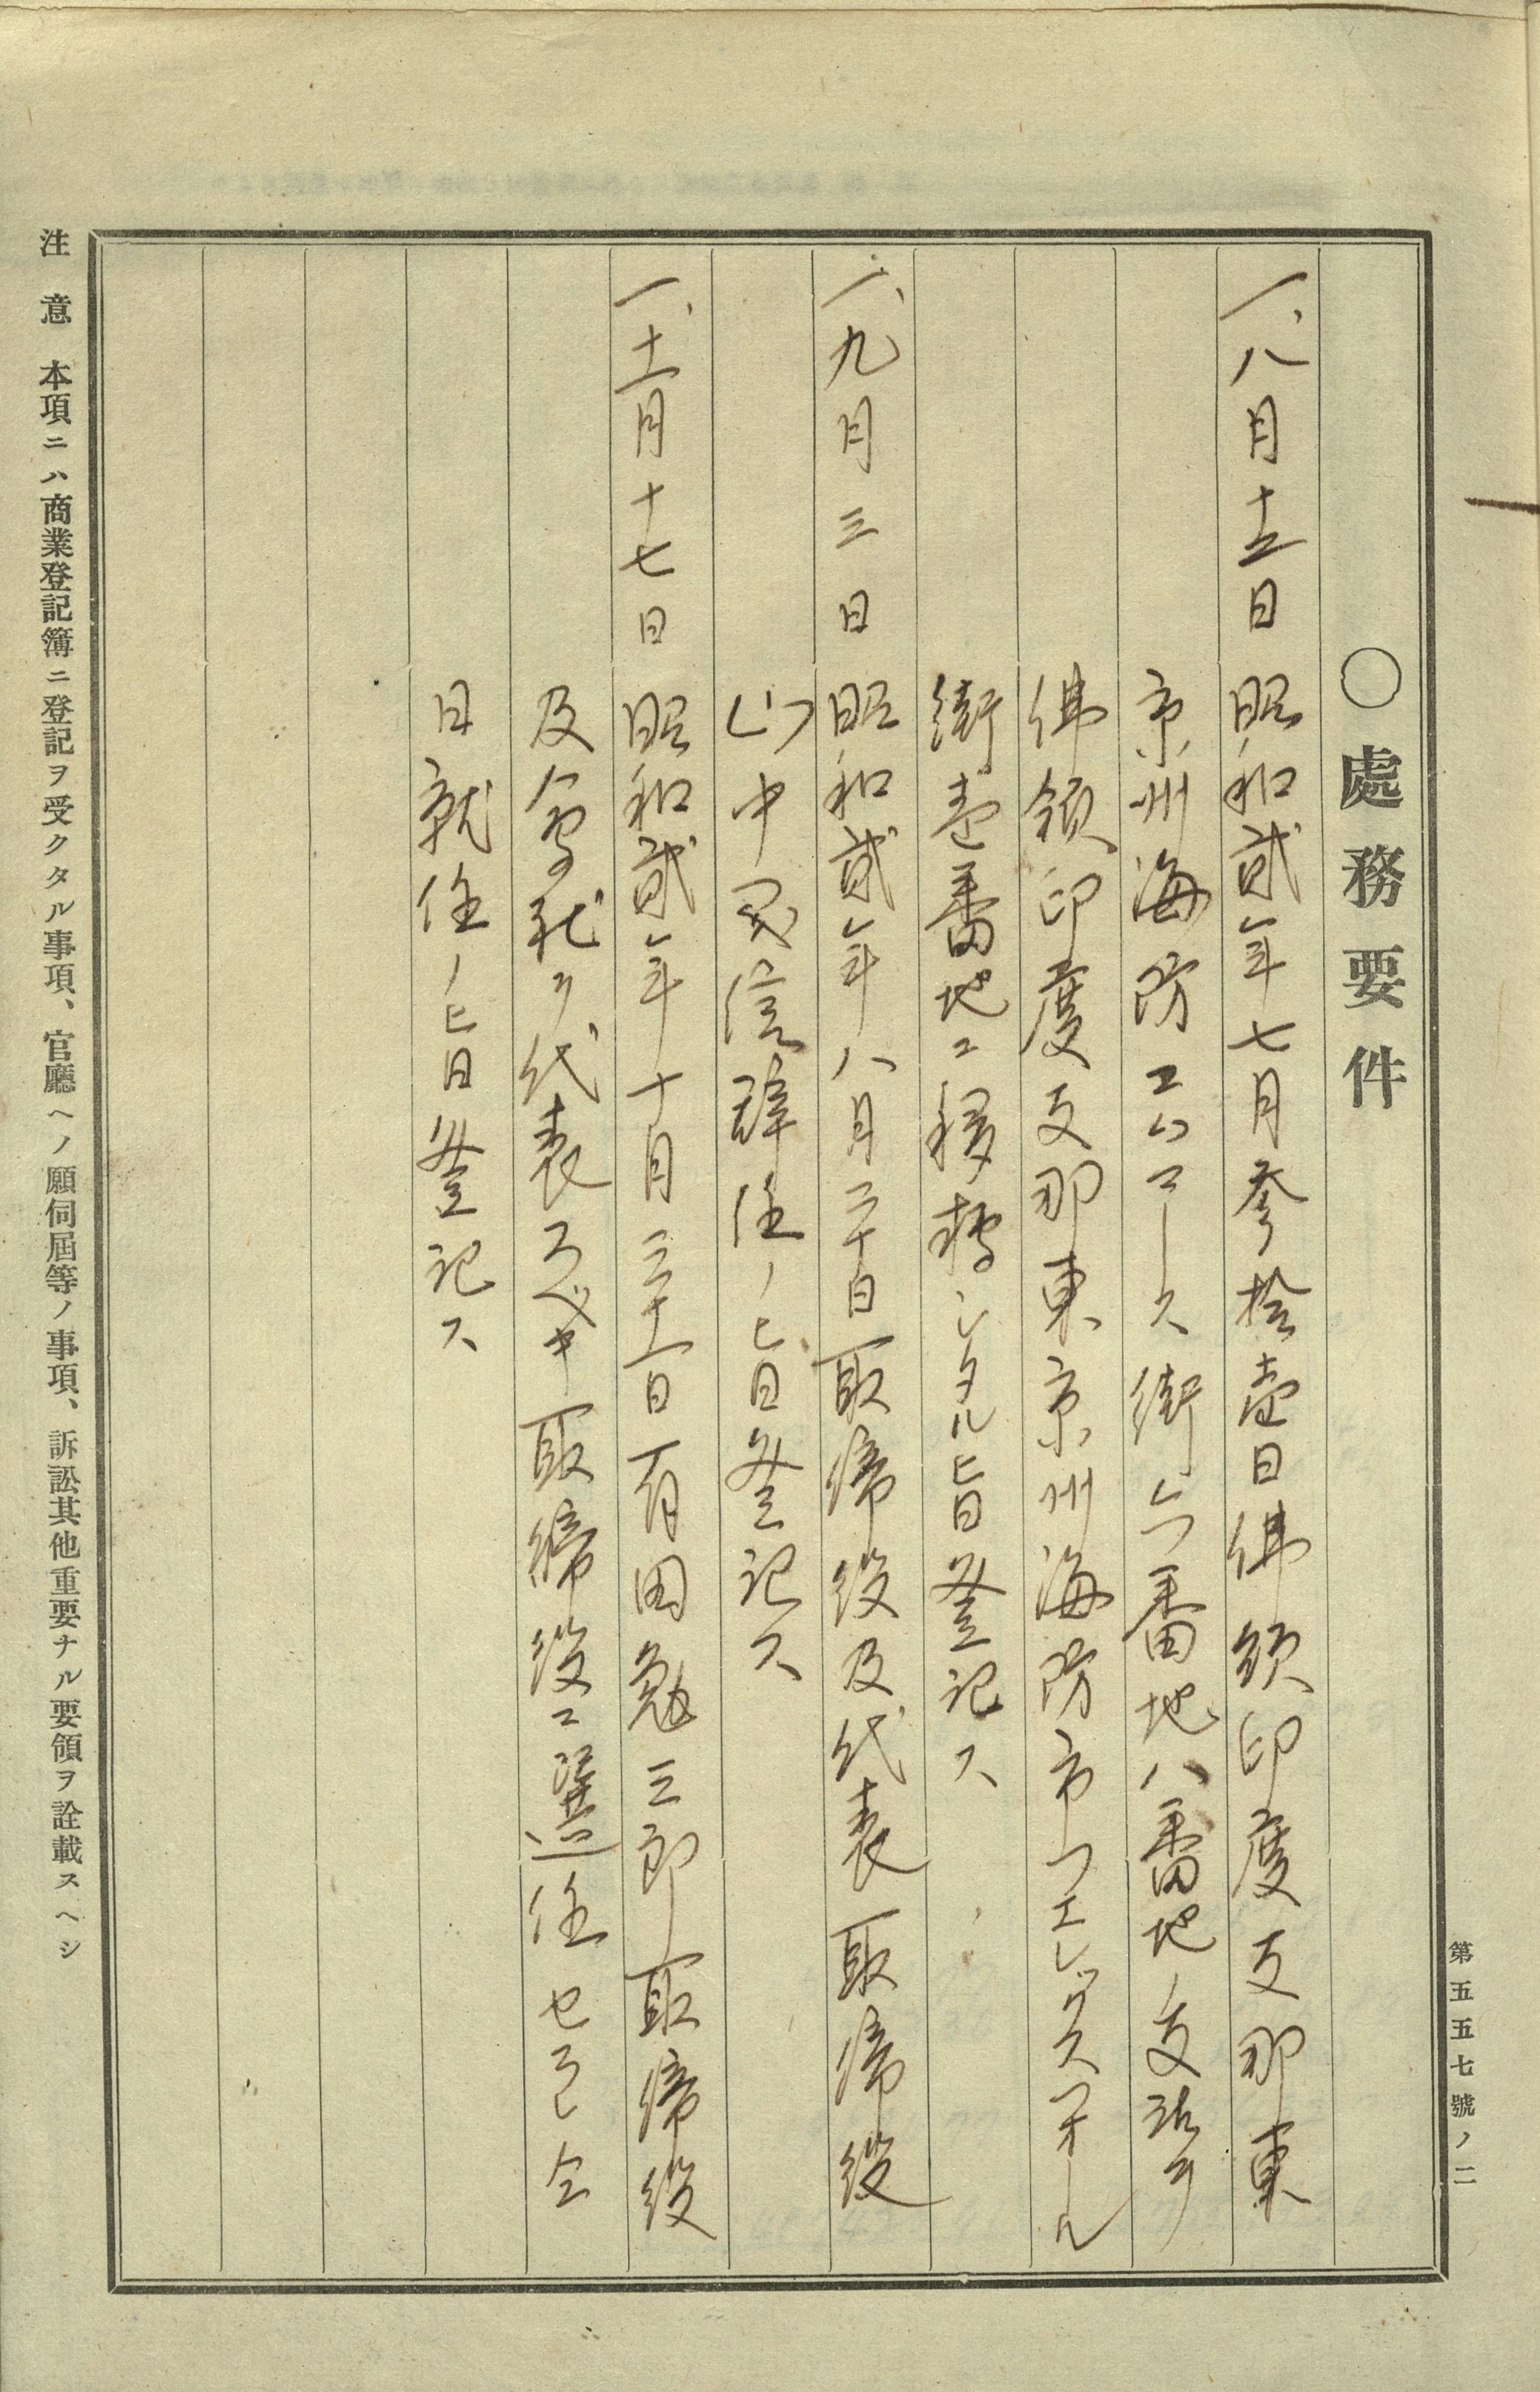 第五五七號ノ二
〇處務要件
一、八月十五日 昭和貳年七月參拾壹日佛領印度支那東
京州海防エムマース街六番地八番地ノ支店ヲ
佛領印度支那東京州海防市フエレックスフオール
街壱番地ニ移轉シタル旨登記ス
一、九月三日 昭和貳年八月二十日取締役及代表取締役
山中 信辞任ノ旨登記ス
一、十一月十七日 昭和貳年十月三十一日有田勉三郎取締役
及會社ヲ代表スベキ取締役ニ選任セラレ仝
日就任ノ旨登記ス
注意 本項ニハ商業登記簿ニ登記ヲ受クタル事項、官廳ヘノ願伺屆等ノ事項、訴訟其他重要ナル要領ヲ詮載スヘシ